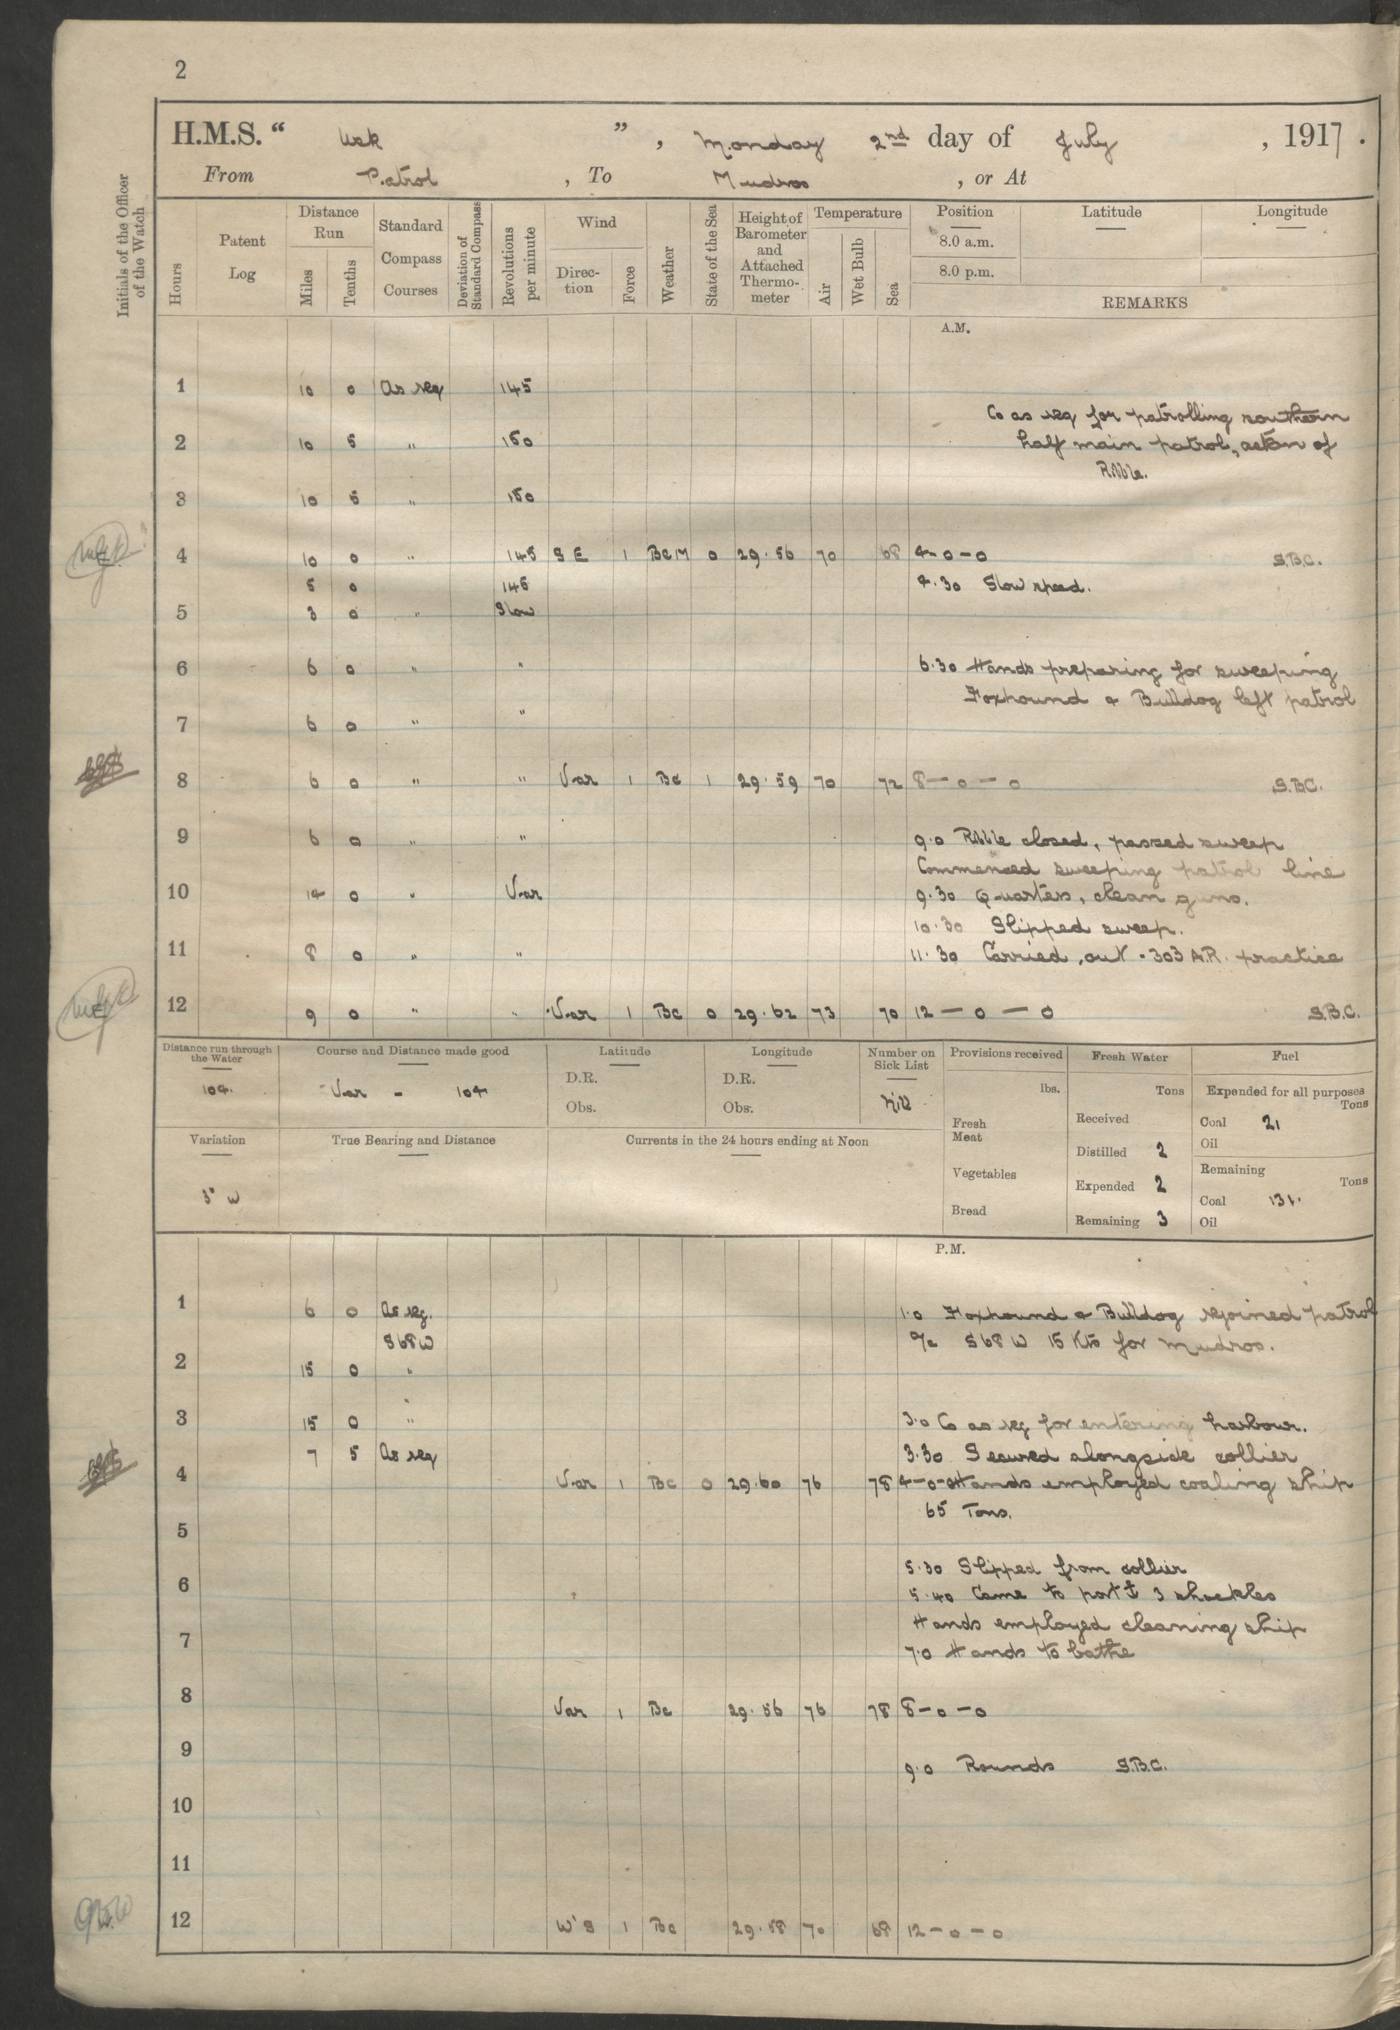 2
H.M.S. “ Usk ” , Monday 2nd day of July , 1917 .
From Patrol , To Mudros , or At
Initials of the Officer of the Watch
Hours
Patent Log
Distance Run
Miles Tenths
Standard Compass Courses
Deviation of Standard Compass
Revolutions per minute
Wind
Direction Force
Weather
State of the Sea
Height of Barometer and Attached Thermometer
Temperature
Air Wet Bulb Sea
Position Latitude Longitude
8.0 a.m.
8.0 p.m.
REMARKS
A.M.
1 10 0 As req 145
Co as req for patrolling southern
2 10 5 " 150 half main patrol, astern of
Ribble.
3 10 5 " 150
4 10 0 " 145 S E 1 BcM 0 29.56 70 68 4-0-0 S.B.C.
5 0 145 4.30 Slow speed.
5 3 0 " Slow
6 6 0 " " 6.30 Hands preparing for sweeping
Foxhound & Bulldog left patrol
7 6 0 " "
8 6 0 " " Var 1 Bc 1 29.59 70 72 8-0-0 S.B.C.
9 6 0 " " 9.0 Ribble closed, passed sweep
Commenced sweeping patrol line
10 14 0 " Var 9.30 Quarters, clean guns.
10.30 Slipped sweep.
11 8 0 " " 11.30 Carried out .303 A.R. practice
12 9 0 " " Var 1 Bc 0 29.62 73 70 12-0-0 S.B.C.
Distance run through the Water Course and Distance made good Latitude Longitude Number on Sick List Provisions received Fresh Water Fuel
104. Var - 104 D.R. D.R. Nil lbs. Tons Expended for all purposes Tons
Obs. Obs. Fresh Meat Received Coal 21
Oil
Variation True Bearing and Distance Currents in the 24 hours ending at Noon
Vegetables Distilled 2 Remaining Tons
3° W Expended 2 Coal 131.
Bread Remaining 3 Oil
P.M.
1 6 0 As req. 1.0 Foxhound & Bulldog rejoined patrol
S68W a/c S68W 15 Kts for Mudros.
2 15 0 "
"
3 15 0 " 3.0 Co as req for entering harbour.
7 5 As req 3.30 Secured alongside collier
4 Var 1 Bc 0 29.60 76 78 4-0-0 Hands employed coaling ship
65 Tons.
5
5.30 Slipped from collier
6 5.40 Came to port ⚓ 3 shackles
Hands employed cleaning ship
7 7.0 Hands to bathe
8 Var 1 Bc 29.56 76 78 8-0-0
9 9.0 Rounds S.B.C.
10
11
12 W'S 1 Bc 29.58 70 68 12-0-0